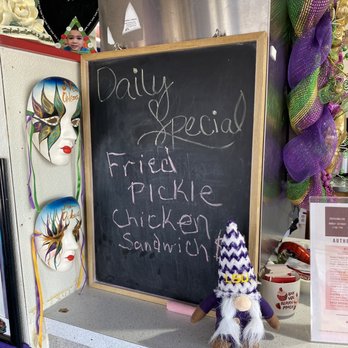 Daily
Special
Fried
Pickle
Chicken
Sandwich $